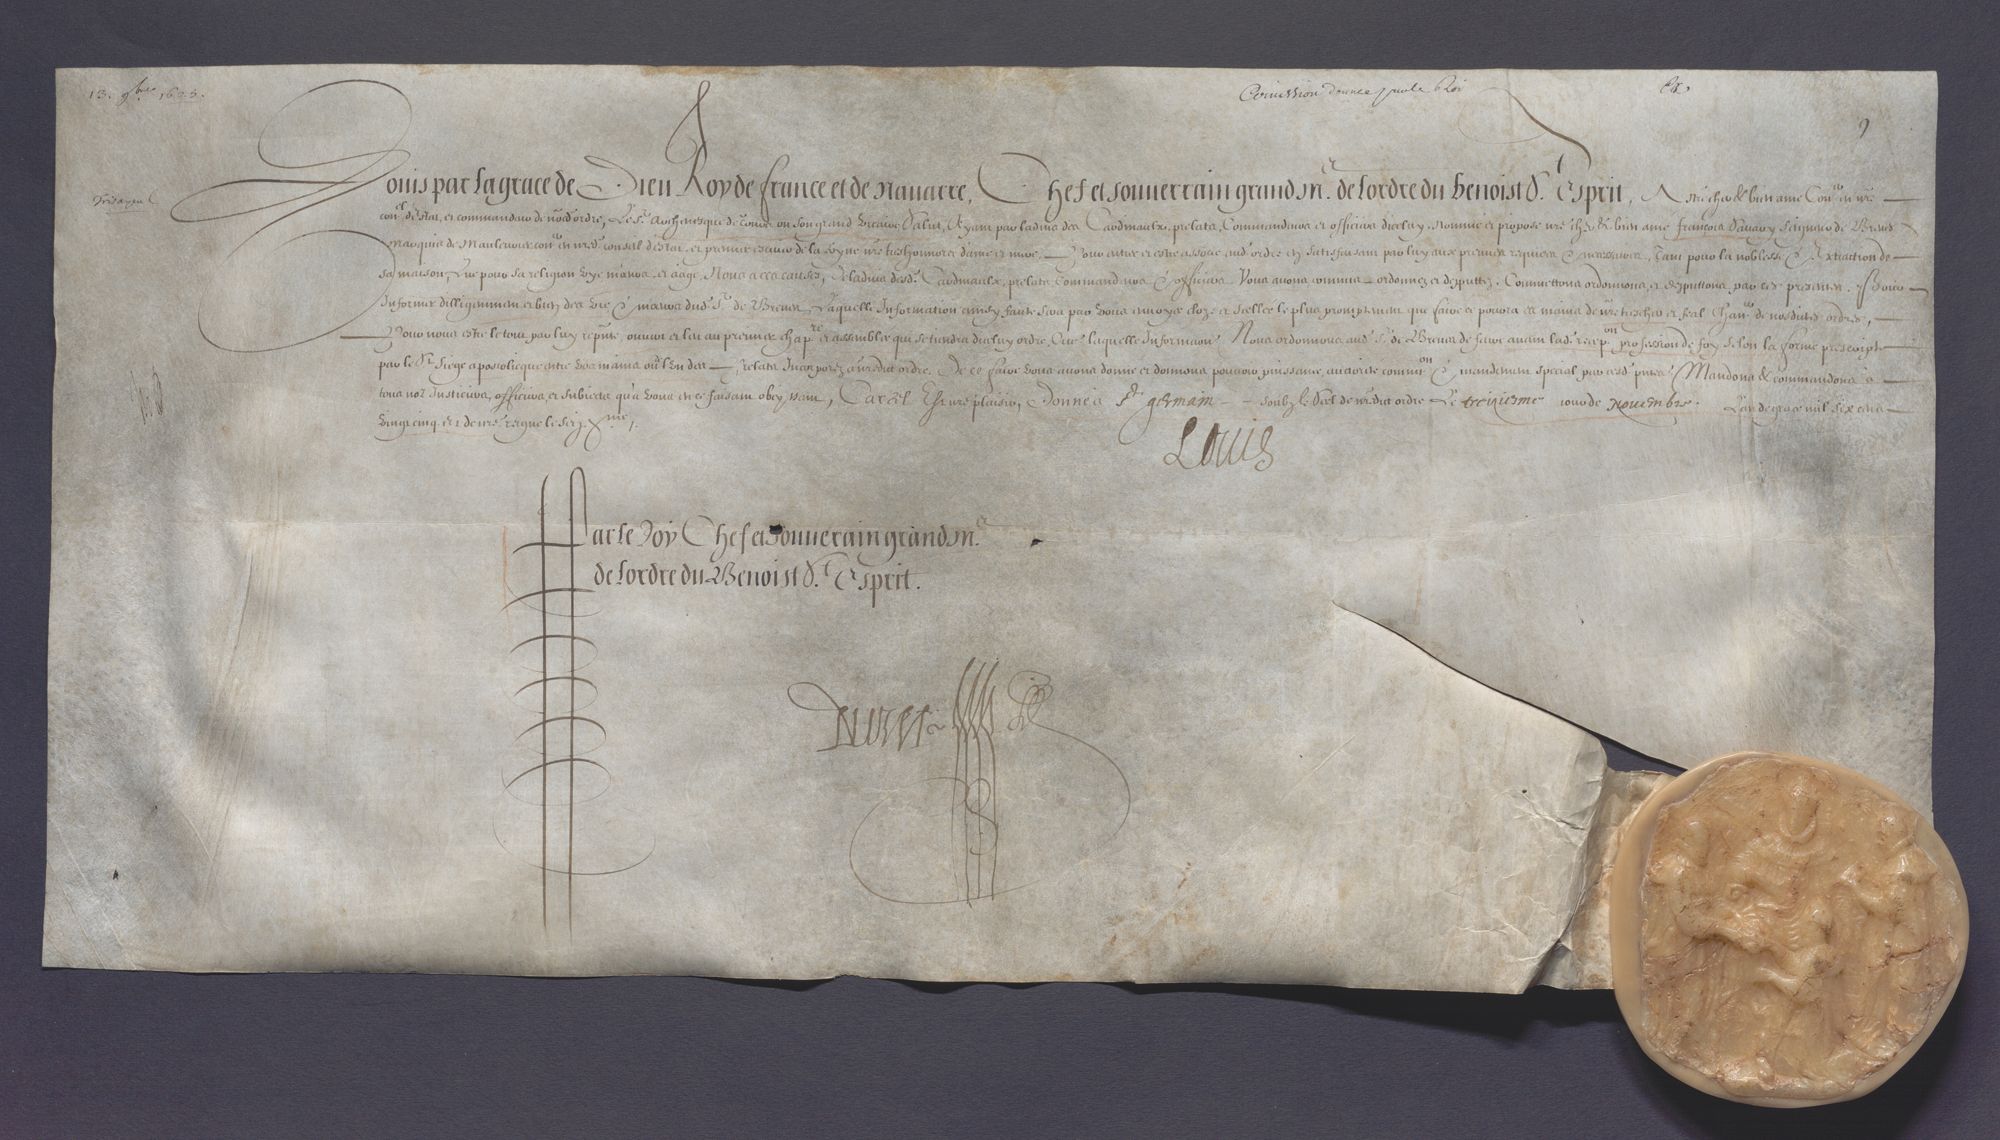 13. 9bre 1625.
Commission donnee par le Roi
9
Louis par la grace de Dieu Roy de france et de Navarre, Chef et souuerrain grand mre. de lordre du benoist St. Esprit, A nre cher & bien ame Coner en nre
conel destat, et commandeur de nosd ordre, Salut, Ayant par ladvis des Cardinaulx, prelatz, Commandeurs et officiers dicelluy, Nommé et proposé nre cher & bien amé françois Sauary Seigneur de Breues
Marquis de Mauleurier conser en nred. conseil destat, et premier escuier de la Royne nre treshonnorée dame et mere, Pour entrer et estre associé aud. ordre en satisfaisant par luy aux preuues requises & necessaires, Tant pour la noblesse & Extraction de
sa maison, Que pour sa religion vye meurs et aage, Nous a ces causes, de ladvis desd. Cardinaulx, prelatz, Commandeurs & officiers Vous auons commis ordonnez et depputtez, Commettons ordonnons, et depputtons, par ces presentes, Pour
Informer dilligemment et bien des vye & meurs dud. Sr. de Breues, Laquelle Information ainsy faicte sera par vous enuoyée close et scellée le plus promptement que faire ce pourra es mains de nre trescher et feal Chanr. de nosdits ordres,
Pour nous estre le tout par luy represenste, ouuert et leu au premier chapre et assemblée qui se tiendra dicelluy ordre, Auec laquelle Information Nous ordonnons aud. Sr. de Breues de faire auant lad. recepon. profession de foy selon la forme prescripte
par le St. Siege apostolicque entre vos mains ou de lun des prelatz Incorporez a nredict ordre. De ce faire vous auons donné et donnons pouuoir puissance, auctorité commison & mandement special par cesd. pntes Mandons & commandons a
tous noz Justiciers, officiers et subiects qua vous en ce faisant obeyssent, Car tel Est nre plaisir, Donné a St. germain soubz le Seel de nredict ordre Le treiziesme iour de Nouembre. Lan de grace mil six cens
vingt cinq, et de nre regne le seiziesme.
Louis
Par le Roy Chef et souuerain grand mre.
de lordre du Benoist St. Esprit.